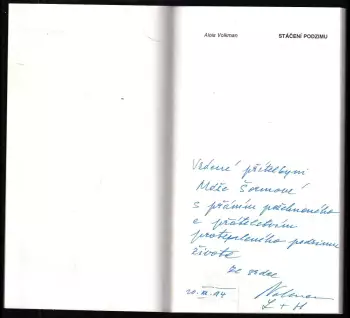 Alois Volkman STÁČENÍ PODZIMU
Vzácné přítelkyni
Máše Šormové
s přáním požehnaného
a přátelstvím
prateplého podzimu
života
ze srdce
20. III. 94 Volkman
L + H